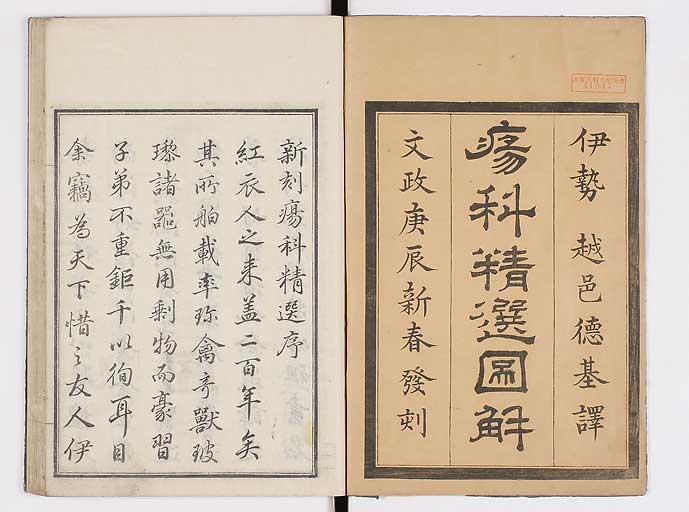 伊勢 越邑德基譯
瘍科精選圖解
文政庚辰新春發刻
新刻瘍科精選序
紅衣人之来盖二百年矣
其所舶載率珍禽竒獸玻
瓈諸噐無用剩物而豪習
子弟不重鉅千以徇耳目
余竊為天下惜之友人伊